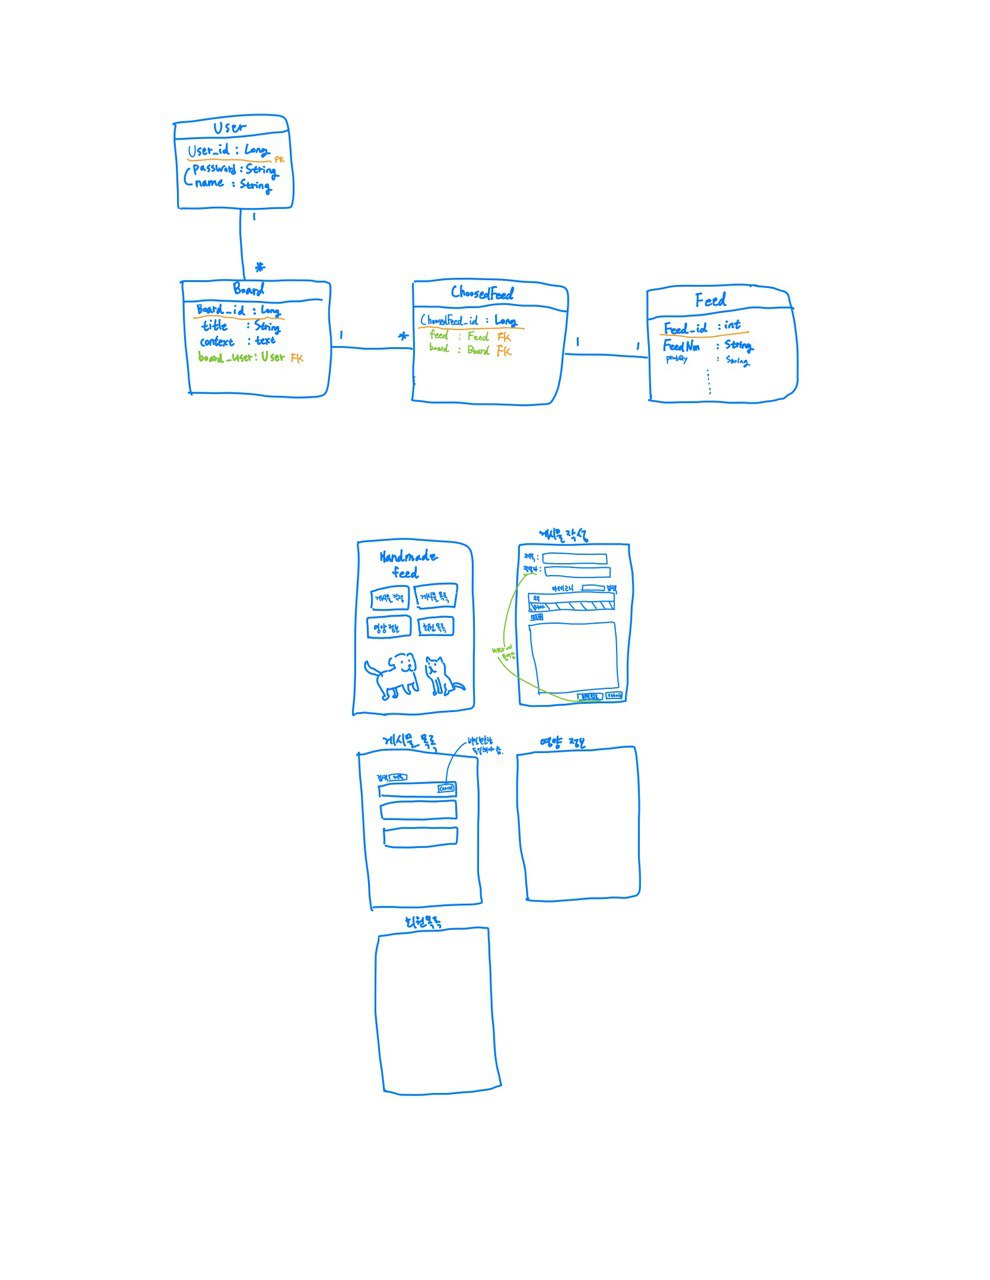 User
User_id : Long
PK
password : String
name : String
1
*
Board
Board_id : Long
title : String
context : text
board_user : User FK
1
*
ChoosedFeed
ChoosedFeed_id : Long
feed : Feed FK
board : Board FK
1
1
Feed
Feed_id : int
FeedNm : String
: String
Handmade
feed
게시물 작성
게시물 목록
영양 정보
회원 목록
게시물 작성
제목 :
작성자 :
카테고리
검색
게시물 목록
검색
제목
영양 정보
회원목록